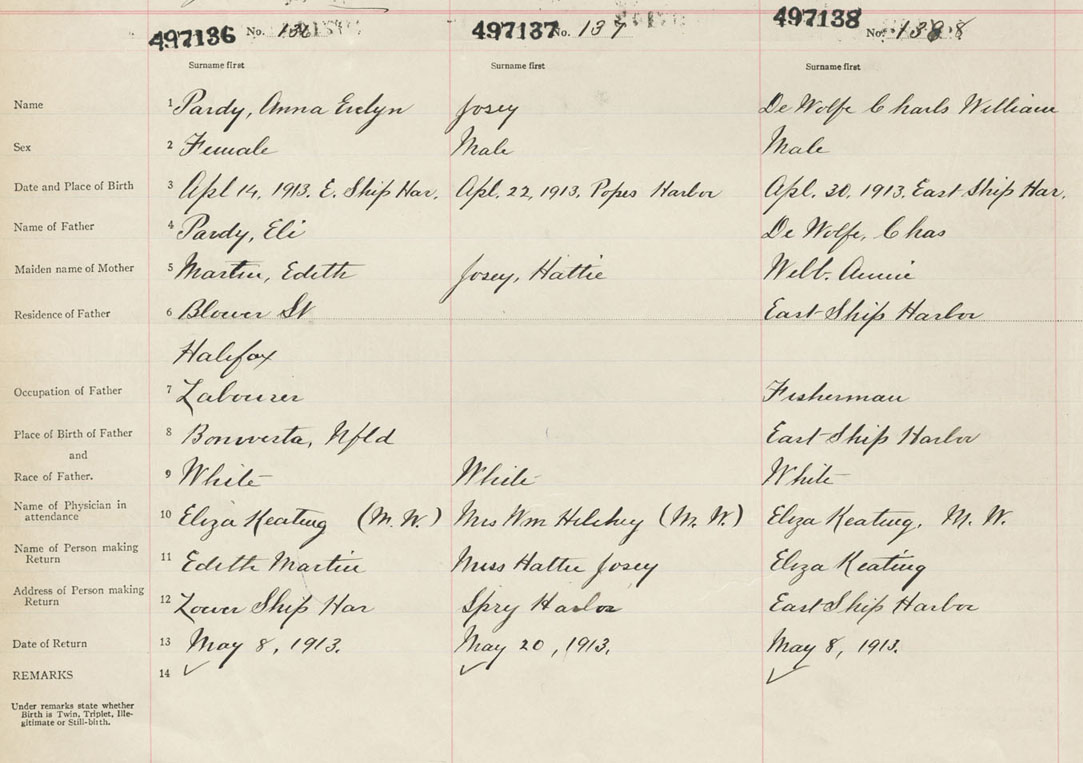 497136 No. 136 497137 No. 137 497138 No. 138 8
Surname first Surname first Surname first
Name 1 Pardy, Anna Evelyn Josey De Wolfe Charls William
Sex 2 Female Male Male
Date and Place of Birth 3 Apl 14, 1913. E. Ship Har. Apl. 22, 1913, Popes Harbor Apl. 30, 1913. East Ship Har.
Name of Father 4 Pardy, Eli De Wolfe, Chas
Maiden name of Mother 5 Martin, Edith Josey, Hattie Webb. Annie
Residence of Father 6 Blower St East Ship Harbor
Halifax
Occupation of Father 7 Labourer Fisherman
Place of Birth of Father 8 Bonaversta, Nfld East Ship Harbor
and
Race of Father. 9 White White White
Name of Physician in
attendance 10 Eliza Keating (M. W.) Mrs Wm Hilchey (M. W.) Eliza Keating, M. W.
Name of Person making
Return 11 Edith Martin Miss Hattie Josey Eliza Keating
Address of Person making
Return 12 Lower Ship Har Spry Harbor East Ship Harbor
Date of Return 13 May 8, 1913. May 20, 1913, May 8, 1913.
REMARKS 14 ✓ ✓ ✓
Under remarks state whether
Birth is Twin, Triplet, Ille-
gitimate or Still-birth.